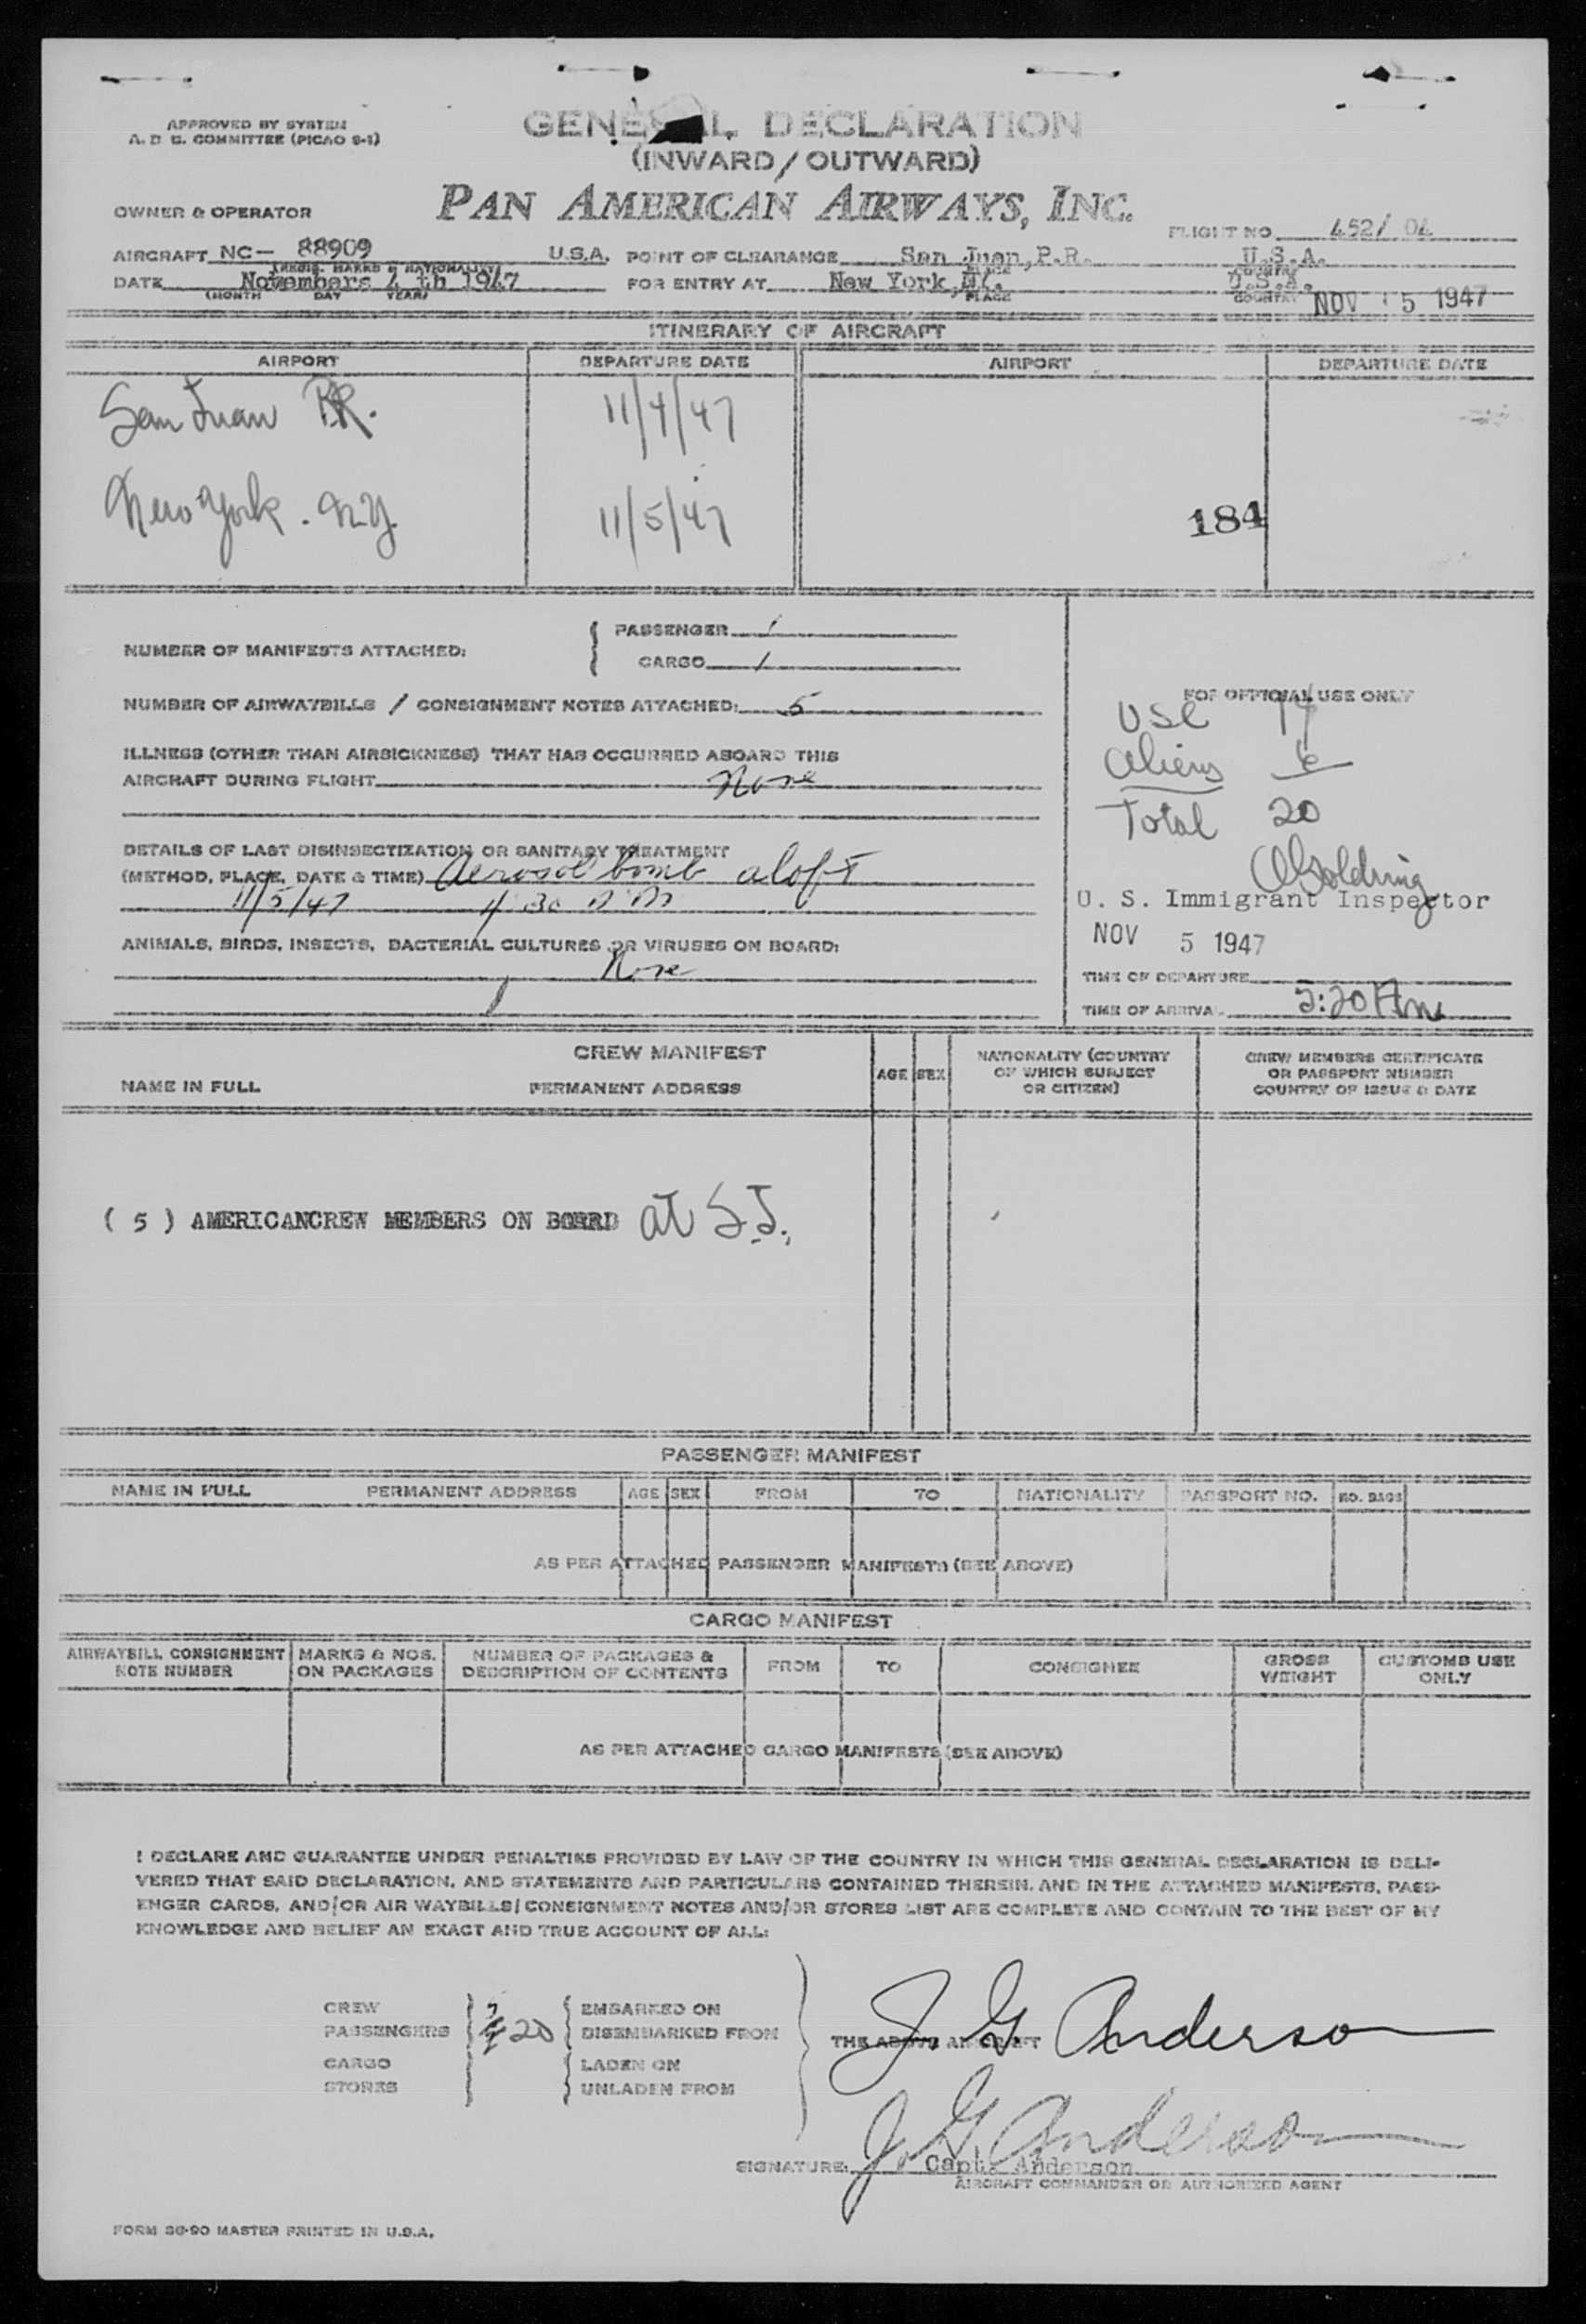 APPROVED BY SYSTEM
A. D. G. COMMITTEE (PICAO S-1)
GENERAL DECLARATION
(INWARD/OUTWARD)
PAN AMERICAN AIRWAYS, INC.
OWNER & OPERATOR
FLIGHT NO. 452/ 04
AIRCRAFT NC- 88909 U.S.A. POINT OF CLEARANCE San Juan, P.R. U.S.A.
(REGIS. MARKS & NATIONALITY) PLACE COUNTRY
DATE Novembers 4 th 1947 FOR ENTRY AT New York, NY. U.S.A.
(MONTH DAY YEAR) PLACE COUNTRY NOV 5 1947
ITINERARY OF AIRCRAFT
AIRPORT DEPARTURE DATE AIRPORT DEPARTURE DATE
San Juan P.R. 11/4/47
New York. N.Y. 11/5/47
184
NUMBER OF MANIFESTS ATTACHED: PASSENGER 1
CARGO 1
NUMBER OF AIRWAYBILLS / CONSIGNMENT NOTES ATTACHED: 5
ILLNESS (OTHER THAN AIRSICKNESS) THAT HAS OCCURRED ABOARD THIS
AIRCRAFT DURING FLIGHT None
DETAILS OF LAST DISINSECTIZATION OR SANITARY TREATMENT
(METHOD, PLACE, DATE & TIME) Aerosol bomb aloft
11/5/47 4:30
ANIMALS, BIRDS, INSECTS, BACTERIAL CULTURES OR VIRUSES ON BOARD:
None
FOR OFFICIAL USE ONLY
USC 14
Aliens 6
Total 20
Golding
U. S. Immigrant Inspector
NOV 5 1947
TIME OF DEPARTURE
TIME OF ARRIVAL 5:20 Am
CREW MANIFEST
NAME IN FULL PERMANENT ADDRESS AGE SEX NATIONALITY (COUNTRY OF WHICH SUBJECT OR CITIZEN) CREW MEMBERS CERTIFICATE OR PASSPORT NUMBER COUNTRY OF ISSUE & DATE
( 5 ) AMERICANCREW MEMBERS ON BOARD at S.J.
PASSENGER MANIFEST
NAME IN FULL PERMANENT ADDRESS AGE SEX FROM TO NATIONALITY PASSPORT NO. NO. BAGS
AS PER ATTACHED PASSENGER MANIFESTS (SEE ABOVE)
CARGO MANIFEST
AIRWAYBILL CONSIGNMENT NOTE NUMBER MARKS & NOS. ON PACKAGES NUMBER OF PACKAGES & DESCRIPTION OF CONTENTS FROM TO CONSIGNEE GROSS WEIGHT CUSTOMS USE ONLY
AS PER ATTACHED CARGO MANIFESTS (SEE ABOVE)
I DECLARE AND GUARANTEE UNDER PENALTIES PROVIDED BY LAW OF THE COUNTRY IN WHICH THIS GENERAL DECLARATION IS DELI-
VERED THAT SAID DECLARATION, AND STATEMENTS AND PARTICULARS CONTAINED THEREIN, AND IN THE ATTACHED MANIFESTS, PASS-
ENGER CARDS, AND/OR AIR WAYBILLS/CONSIGNMENT NOTES AND/OR STORES LIST ARE COMPLETE AND CONTAIN TO THE BEST OF MY
KNOWLEDGE AND BELIEF AN EXACT AND TRUE ACCOUNT OF ALL:
CREW EMBARKED ON
PASSENGERS 20 DISEMBARKED FROM
THE ABOVE AIRCRAFT J. G. Anderson
CARGO LADEN ON
STORES UNLADEN FROM
J. G. Anderson
SIGNATURE: Capt. Anderson
AIRCRAFT COMMANDER OR AUTHORIZED AGENT
FORM SG-90 MASTER PRINTED IN U.S.A.